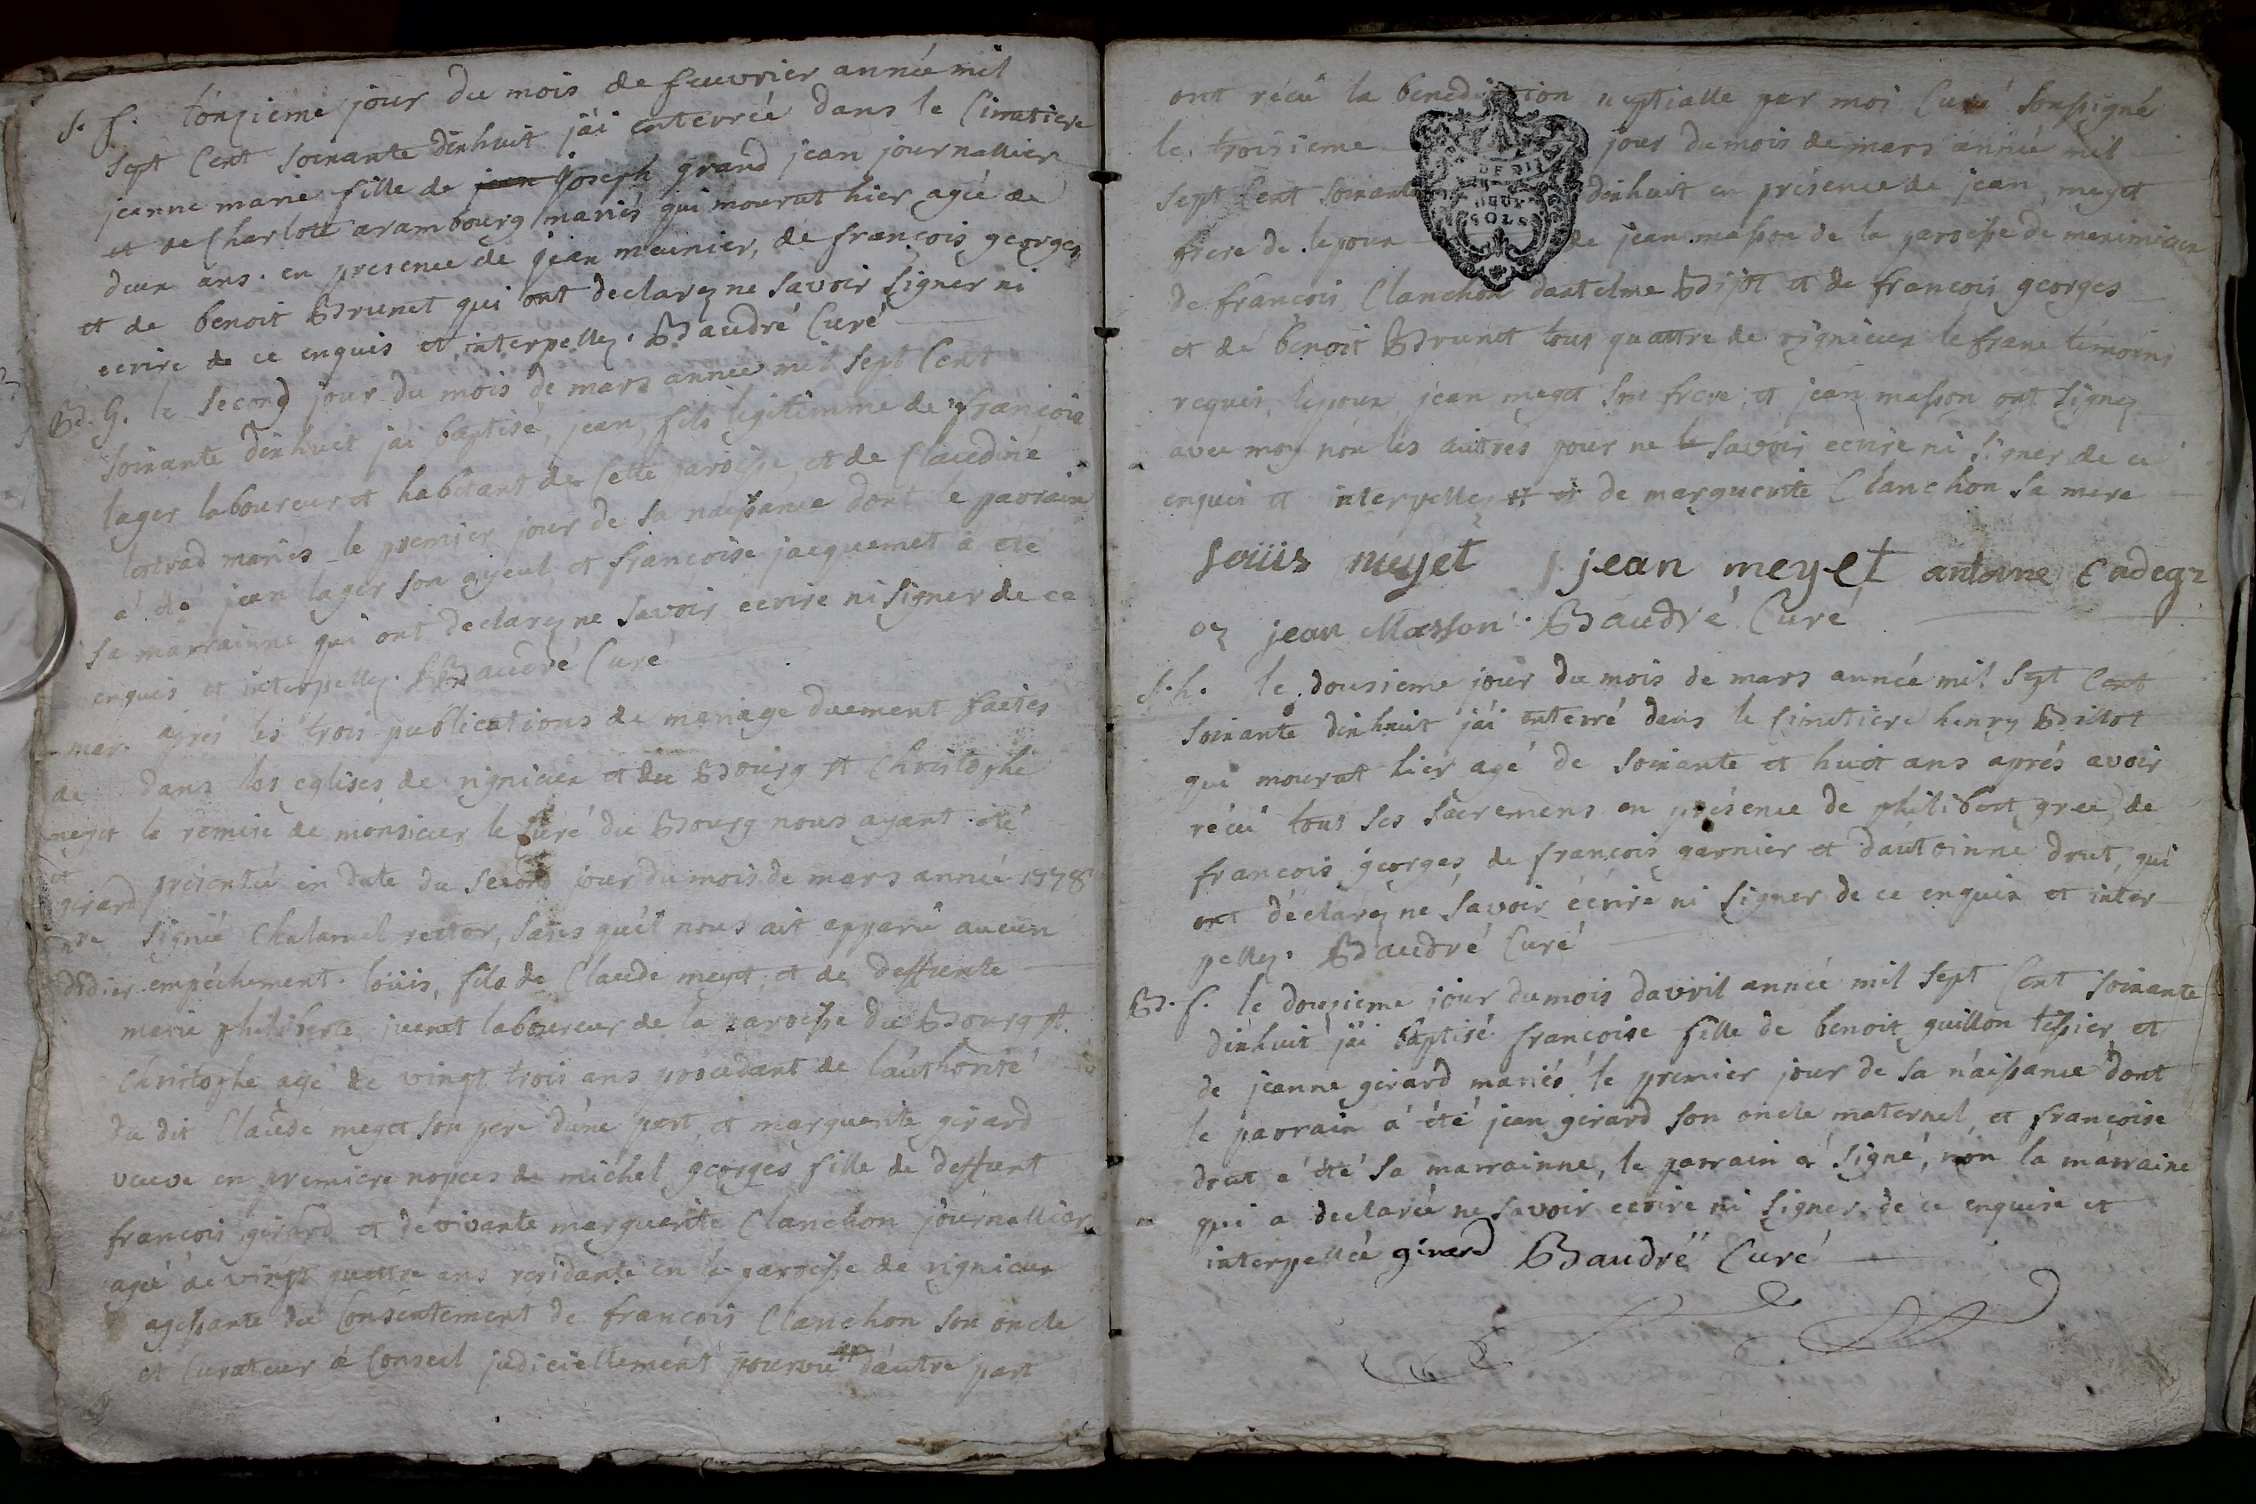 S. f. lonzieme jour du mois de feuvrier année mil
sept Cent soixante dixhuit j'ai enterrée dans le Cimetiere
jeanne marie fille de jean joseph grand jean journallier
et de Charlote arambourg mariés qui mourut hier agée de
deux ans. en presence de jean meunier, de françois georges,
et de benoit Brunet qui ont declarez ne savoir signer ni
ecrire de ce enquis et interpellez. Baudré Curé
B. G. le second jour du mois de mars année mil sept Cent
soixante dixhuit j'ai baptisé, jean, fils legitimme de françois
lager laboureur et habitant de Cette paroisse et de Claudine
mariés le premier jour de sa naissance dont le parrain
a été jean lager son ayeul et françoise jacquemet a été
sa marrainne qui ont declarez ne savoir ecrire ni signer de ce
enquis et interpellez. Baudré Curé
mar. aprés les trois publications de mariage duement faites
de dans les eglises de rignieux et du Bourg st Christophe
meyet la remise de monsieur le Curé du Bourg nous ayant été
et
girard présentée en date du second jour du mois de mars année 1778
signée Chalamel rector, sans qu'il nous ait apparu aucun
empéchement. loüis, fils de Claude meyet, et de deffunte
marie philiberte juenet laboureur de la paroisse du Bourg st.
Christophe agé de vingt trois ans procedant de l'authorité
du dit Claude meyet son pere d'une part, et marguerite girard
veuve en premiere nopces de michel georges fille de deffunt
françois girard et de vivante marguerite Clanchon journallier
agée de vingt quattre ans residante en la paroisse de rignieux
agissante du Consentement de françois Clanchon son oncle
et Curateur à Conseil judiciellement pourvu # d'autre part
ont récu la benediction nuptialle par moi Curé soussigné
le troisieme jour du mois de mars année mil
sept Cent soixante dixhuit en présence de jean meyet
frere de lepoux de jean masson de la paroisse de meximieux
DEUX
SOLS
de françois Clanchon dantelme Bijot et de françois georges
et de benoit Brunet tous quattre de rignieux le franc témoins
requis, lepoux jean meyet son frere, et jean masson ont signez
avec moy non les auttres pour ne le savoir ecrire ni signer de ce
enquis et interpellez # et de marguerite Clanchon sa mere
Loüis meyet jean meyet antoine
jean Masson. Baudré Curé
S. h. le dousieme jour du mois de mars année mil sept Cent
soixante dixhuit j'ai enterré dans le Cimetiere henry Billot
qui mourut hier agé de soixante et huit ans aprés avoir
récu tous ses sacremens en présence de philibert gree, de
françois georges, de françois garnier et d'autoinne drut, qui
ont déclarez ne savoir écrire ni signer de ce enquis et inter
pellez. Baudré Curé
B. f. le douzieme jour du mois davril année mil sept Cent soixante
dixhuit j'ai baptisé françoise fille de benoit guillon tessier et
de jeanne girard mariés le premier jour de sa naissance dont
le parrain a été jean girard son oncle maternel, et françoise
drut a été sa marrainne, le parrain a signé, non la marraine
qui a declarée ne savoir ecrire ni signer de ce enquise et
interpellée girard Baudré Curé